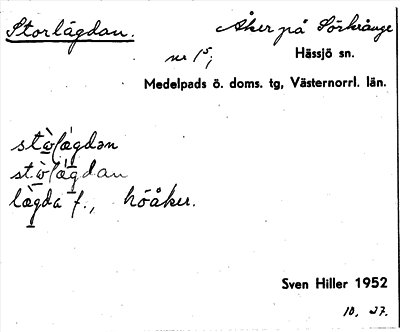 Storlägdan. Åker på Sörkrånge
nr 1⁵;
Hässjö sn.
Medelpads ö. doms. tg, Västernorrl. län.
stὼlǽgdən
stὼlǽgdan
lægda f., höåker.
Sven Hiller 1952
10. 27.